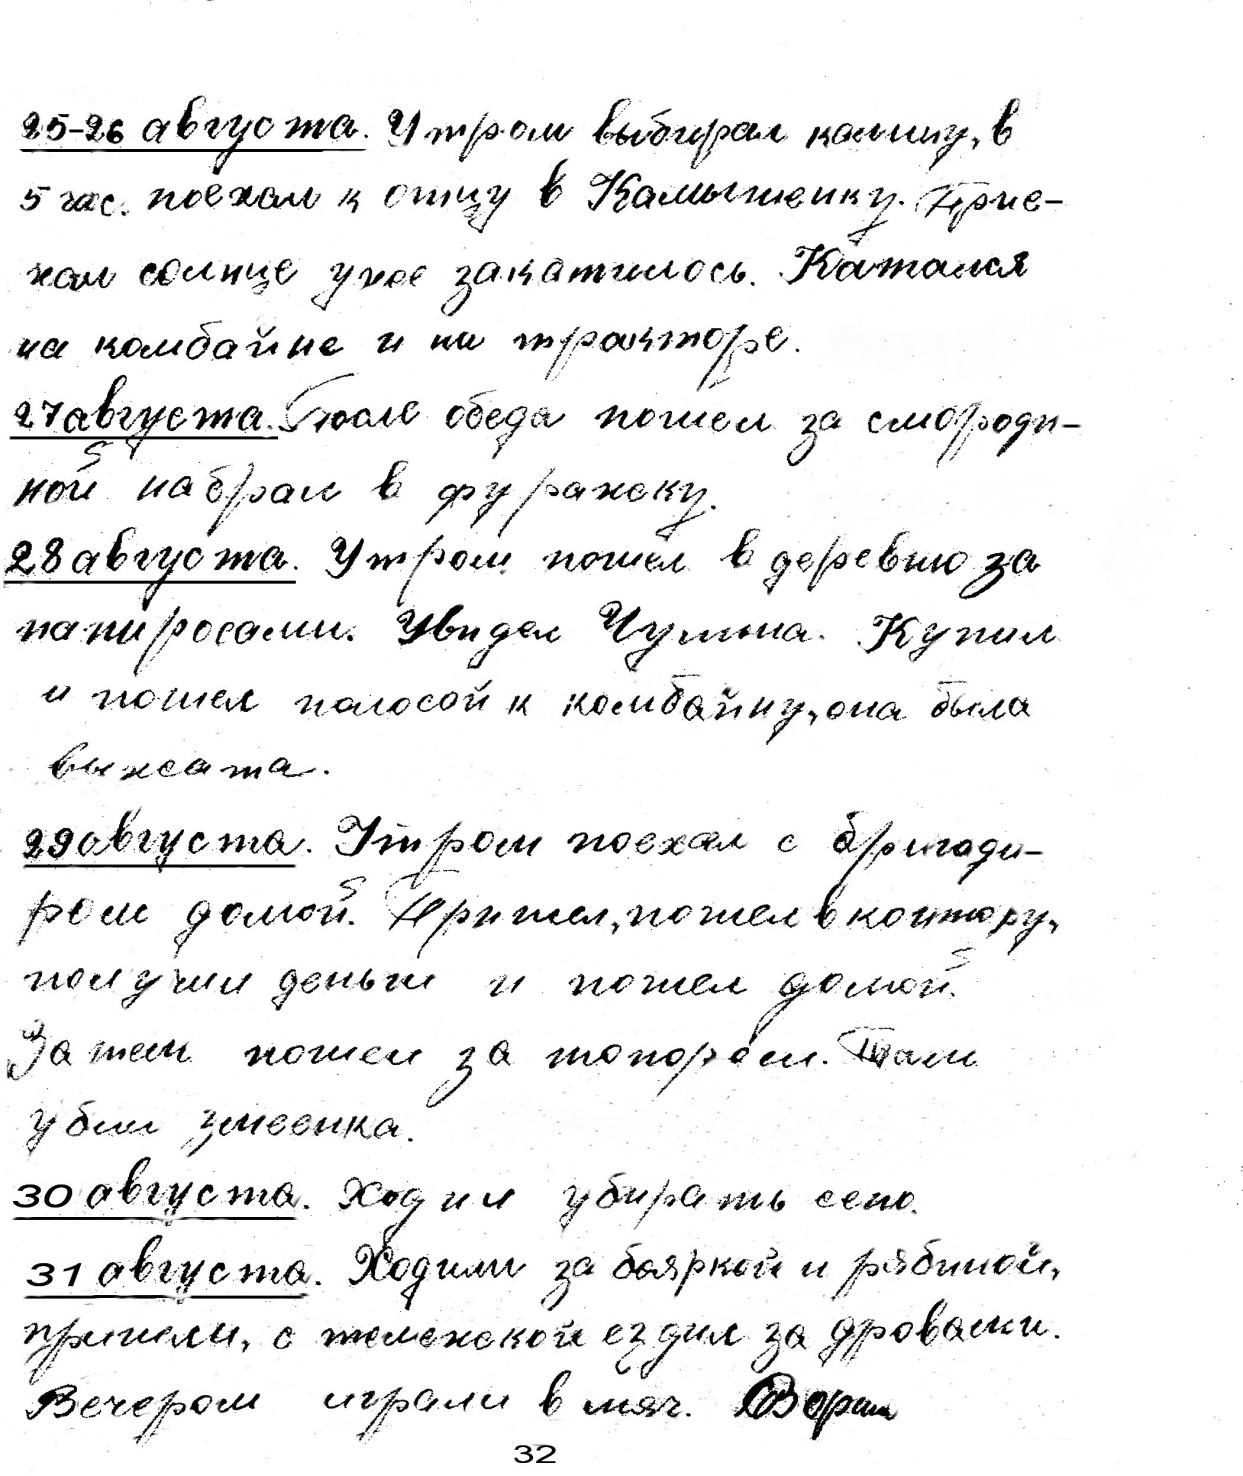 25-26 августа. Утром выбирал калину, в
5 час. поехал к отцу в Камышенку. Прие-
хал солнце уже закатилось. Катался
на комбайне и на тракторе.
27 августа. После обеда пошел за смороди-
ной набрал в фуражку.
28 августа. Утром пошел в деревню за
папиросами. Увидел Купил
и пошел полосой к комбайну, она была
выжата.
29 августа. Утром поехал с бригади-
ром домой. Пришел, пошел в контору,
получил деньги и пошел домой.
Затем пошел за топором. Там
убил змеенка.
30 августа. Ходил убирать сено.
31 августа. Ходили за бояркой и рябиной,
пришли, с тележкой ездил за дровами.
Вечером играли в мяч.
32